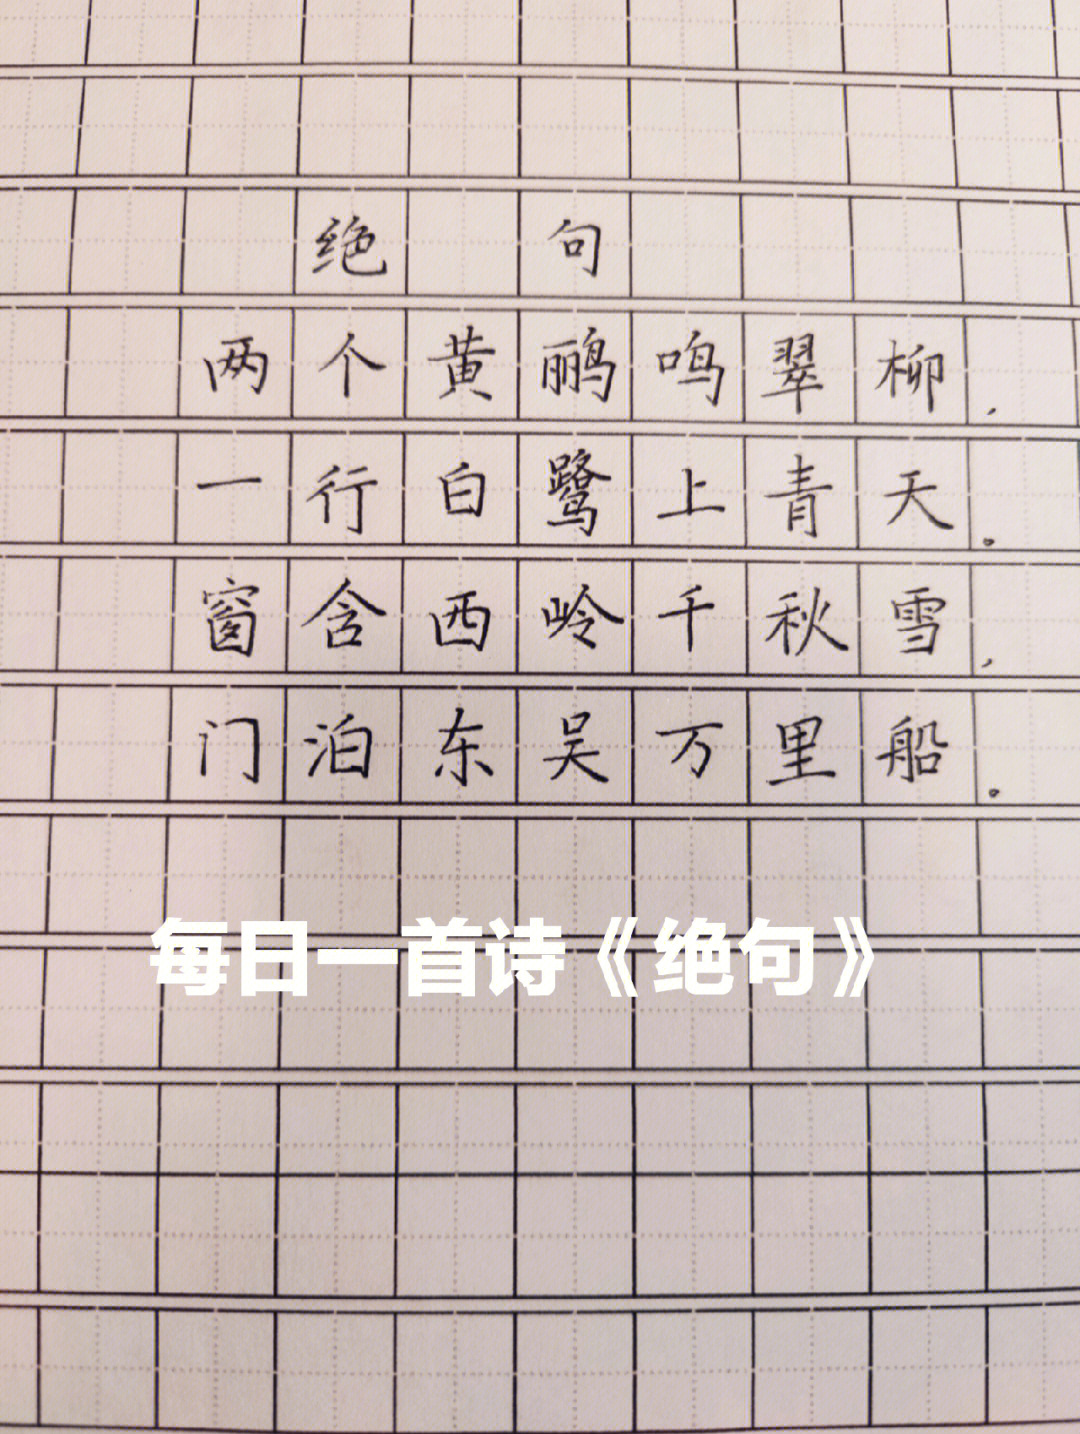 绝句
两个黄鹂鸣翠柳,
一行白鹭上青天。
窗含西岭千秋雪,
门泊东吴万里船。
每日一首诗《绝句》